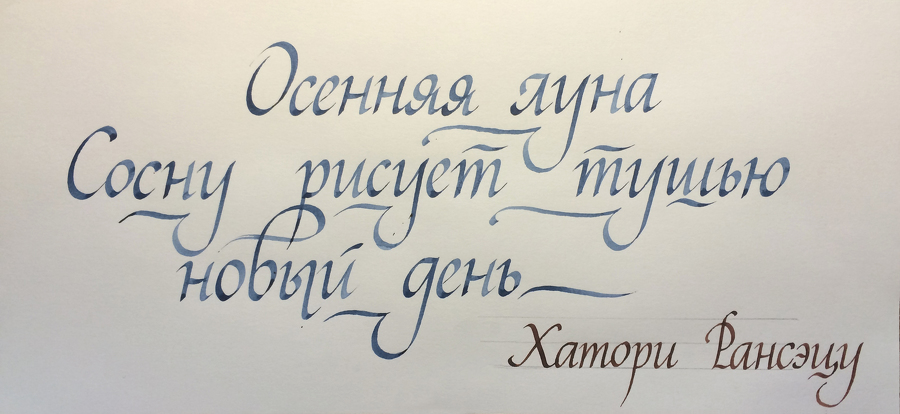 Осенняя луна
Сосну рисует тушью
новый день
Хатори Рансэцу